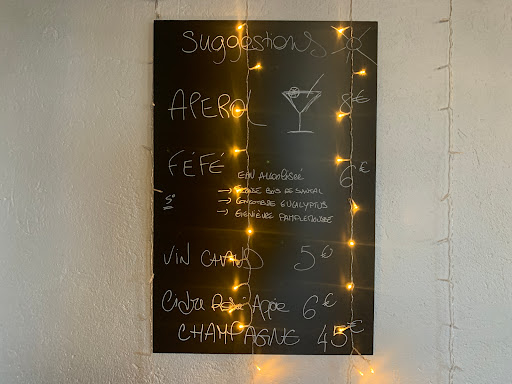 Suggestions
APEROL 8€
FÉFÉ 6€
EAU ALCOOLISÉE
→ BOIS DE SANTAL
→ CONCOMBRE EUCALYPTUS
→ GENIÈVRE PAMPLEMOUSSE
VIN CHAUD 5€
6€
CHAMPAGNE 45€